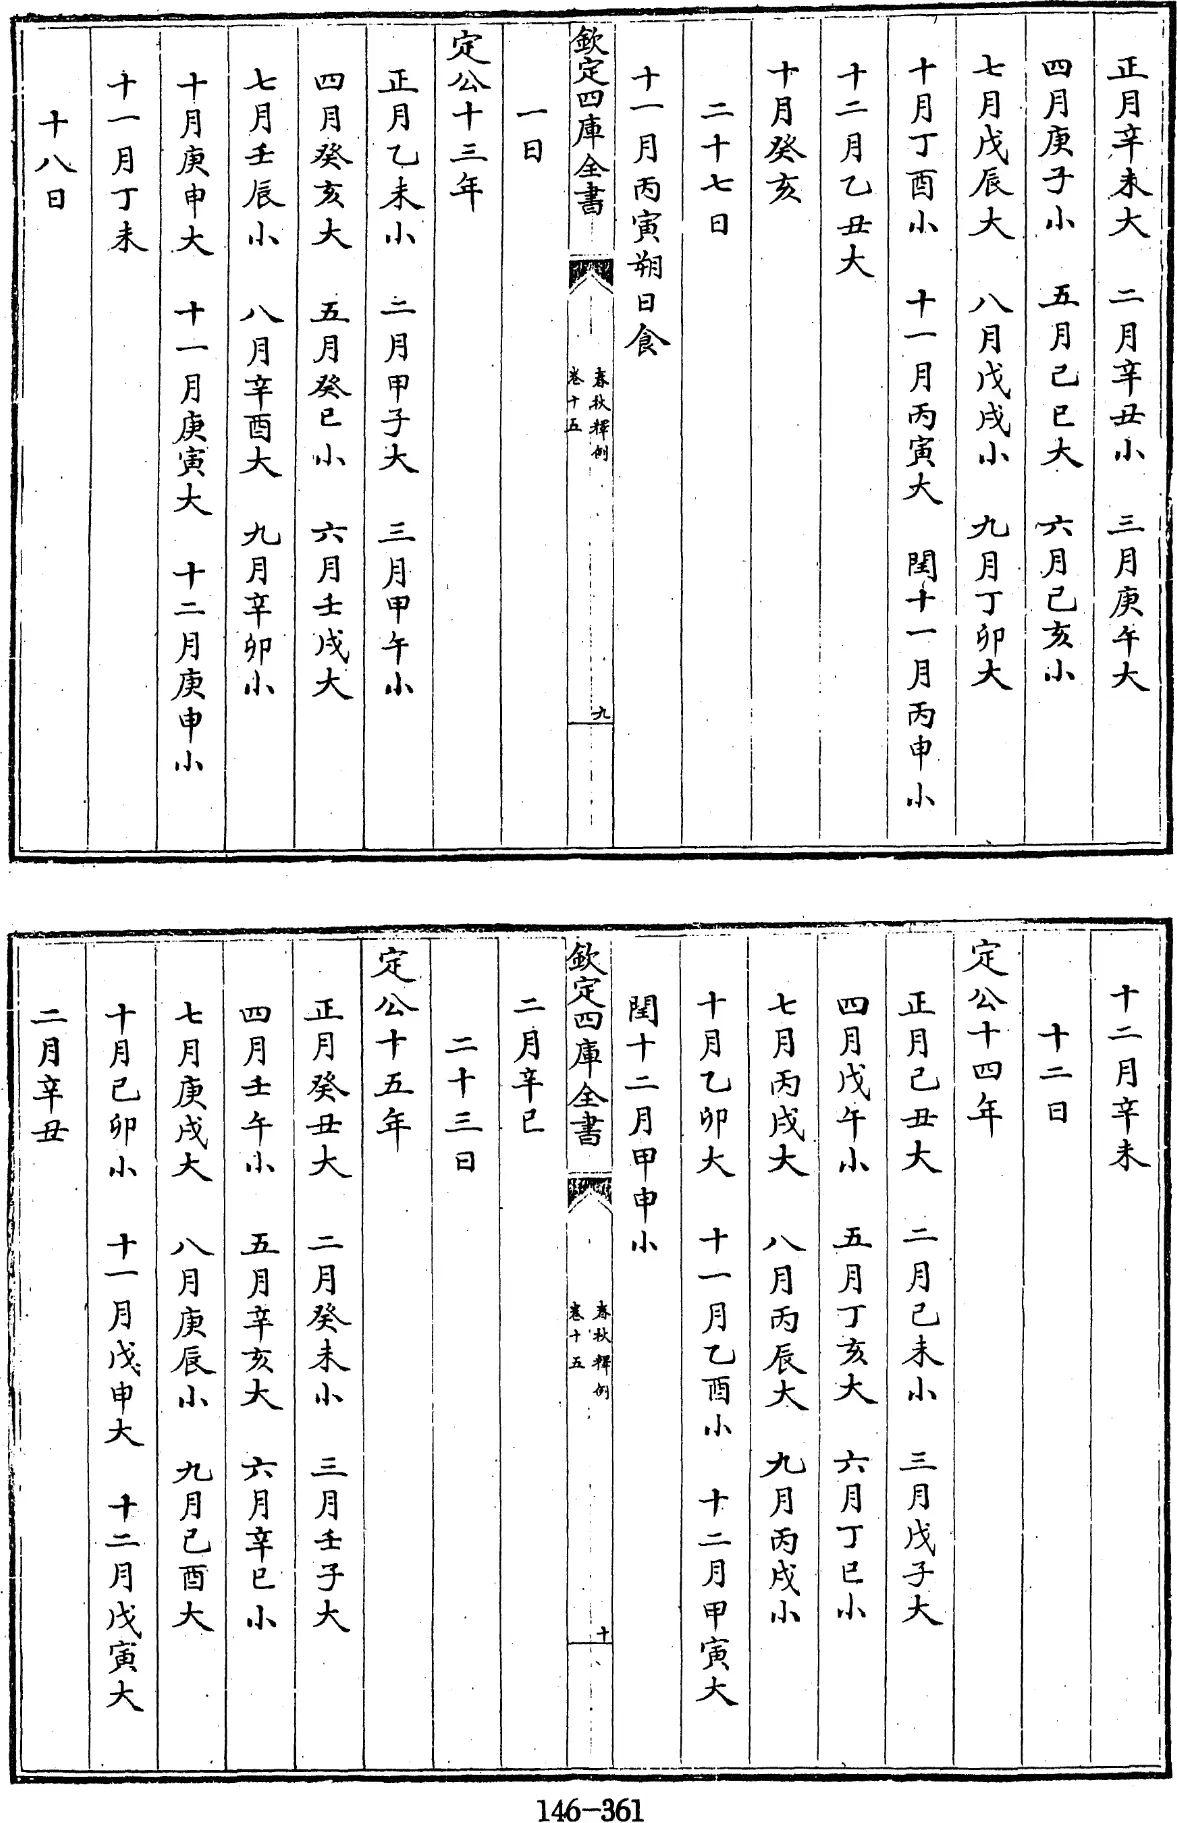 正月辛未大　二月辛丑小　三月庚午大
四月庚子小　五月己巳大　六月己亥小
七月戊辰大　八月戊戌小　九月丁卯大
十月丁酉小　十一月丙寅大　閏十一月丙申小
十二月乙丑大
十月癸亥
二十七日
十一月丙寅朔日食
欽定四庫全書　春秋釋例卷十五　九
一日
定公十三年
正月乙未小　二月甲子大　三月甲午小
四月癸亥大　五月癸巳小　六月壬戌大
七月壬辰小　八月辛酉大　九月辛卯小
十月庚申大　十一月庚寅大　十二月庚申小
十一月丁未
十八日
十二月辛未
十二日
定公十四年
正月己丑大　二月己未小　三月戊子大
四月戊午小　五月丁亥大　六月丁巳小
七月丙戌大　八月丙辰大　九月丙戌小
十月乙卯大　十一月乙酉小　十二月甲寅大
閏十二月甲申小
欽定四庫全書　春秋釋例卷十五　十
二月辛巳
二十三日
定公十五年
正月癸丑大　二月癸未小　三月壬子大
四月壬午小　五月辛亥大　六月辛巳小
七月庚戌大　八月庚辰小　九月己酉大
十月己卯小　十一月戊申大　十二月戊寅大
二月辛丑
146-361